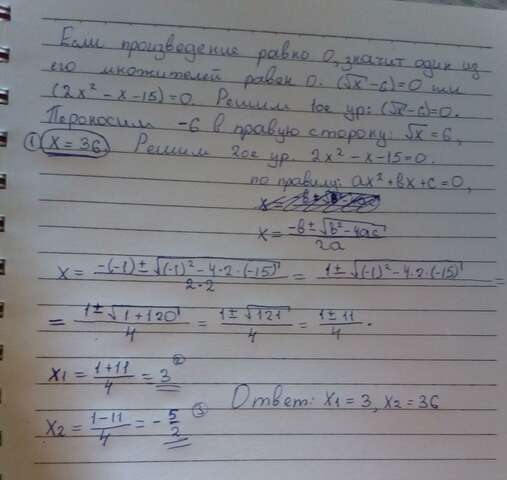 Если произведение равно 0, значит один из
его множителей равен 0. (√x-6)=0 или
(2x²-x-15)=0. Решим 1ое ур: (√x-6)=0.
Переносим -6 в правую сторону: √x=6,
① x=36 Решим 2ое ур. 2x²-x-15=0.
по правилу: ax²+bx+c=0,
x = (-b±√(b²-4ac))/2a
x = (-(-1)±√((-1)²-4·2·(-15)))/(2·2) = (1±√((-1)²-4·2·(-15)))/4 =
= (1±√(1+120))/4 = (1±√121)/4 = (1±11)/4.
x1 = (1+11)/4 = 3 ②
x2 = (1-11)/4 = -5/2 ③
Ответ: x1=3, x2=36